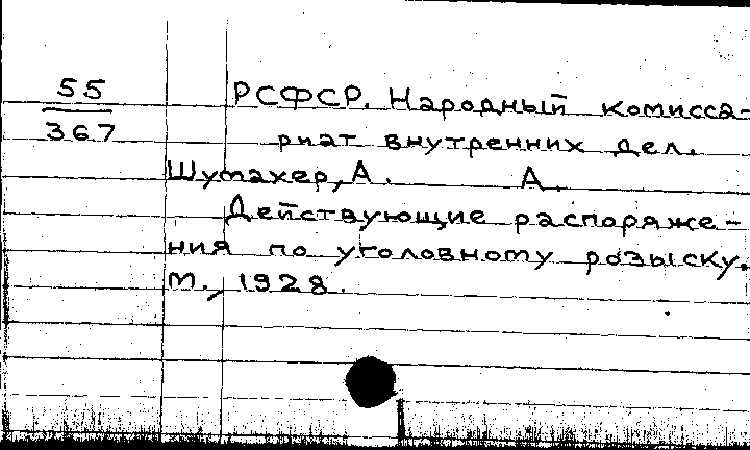 55
367
РСФСР. Народный комисса-
риат внутренних дел.
Шумахер, А. А.
Действующие распоряже-
ния по уголовному розыску.
М., 1928.